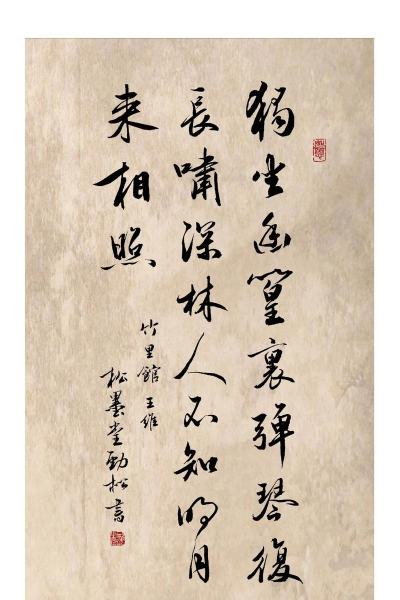 獨坐幽篁裏弹琴復
長嘯深林人不知明月
来相照
竹里館 王維
松墨堂勁松書